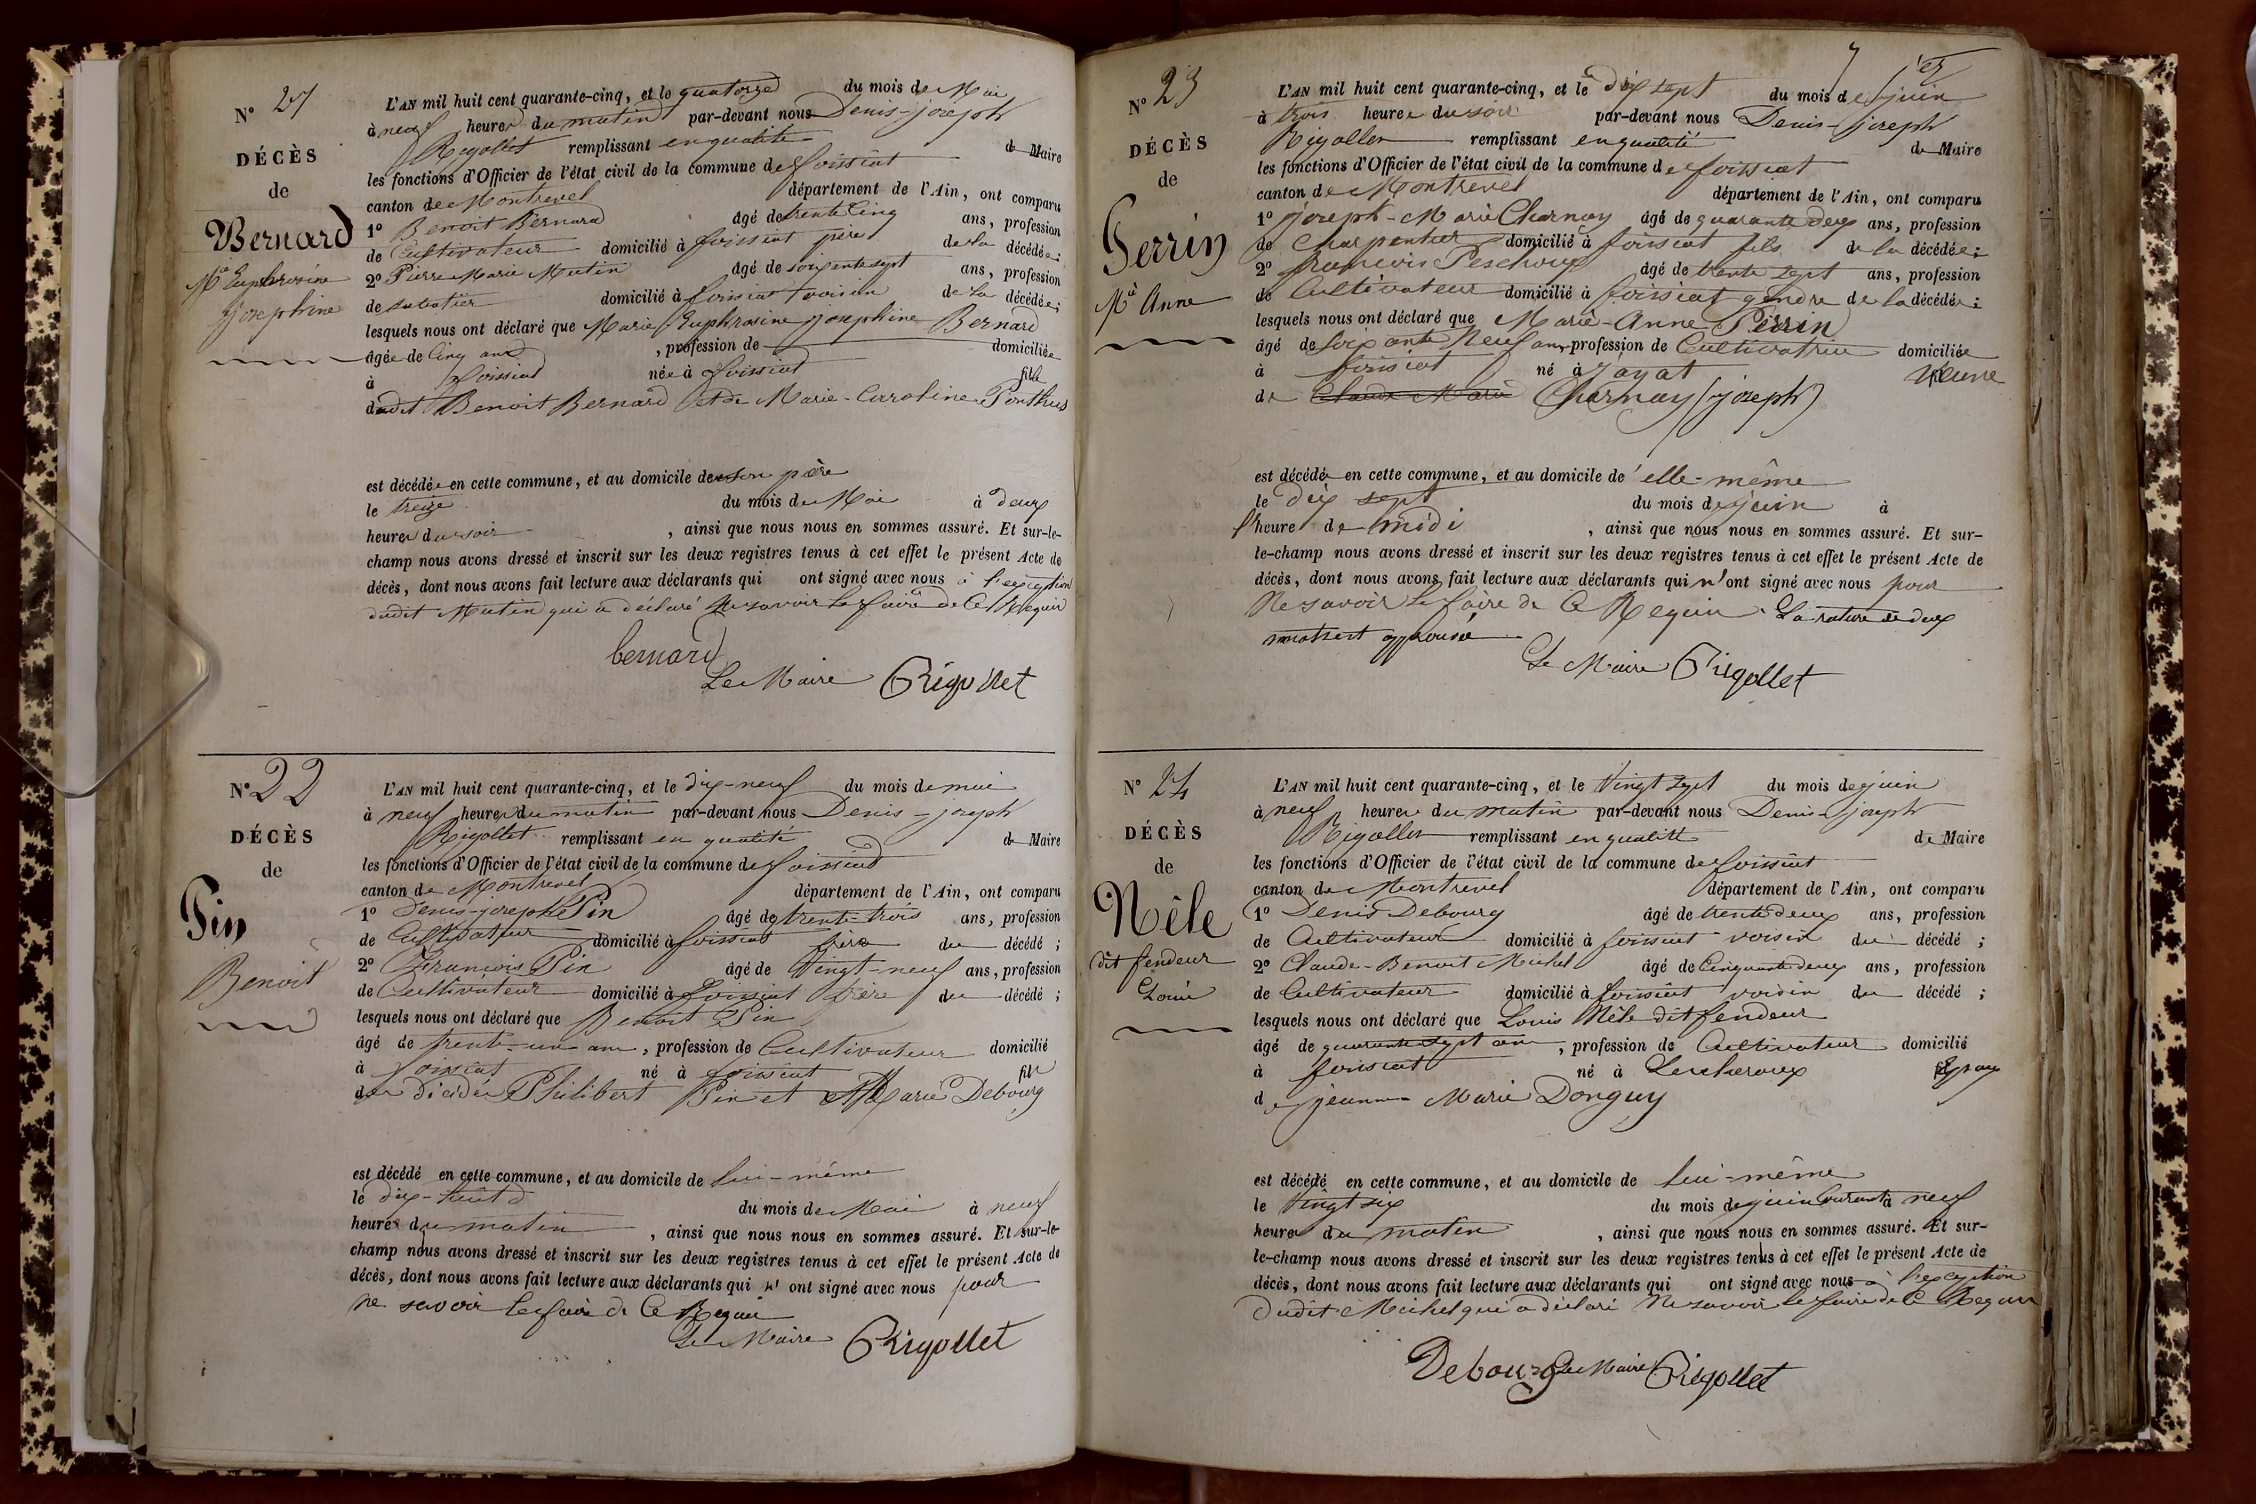 N° 21
DÉCÈS
de
Bernard
Mie Euphrosine
Josephine
L'AN mil huit cent quarante-cinq, et le quatorze du mois de Mai
à neuf heures du matin par-devant nous Denis-joseph
Rigollet remplissant en qualité de Maire
les fonctions d'Officier de l'état civil de la commune de foissiat
canton de Montrevel département de l'Ain, ont comparu
1° Benoit Bernard âgé de trente Cinq ans, profession
de Cultivateur domicilié à foissiat père de la décédée;
2° Pierre Marie Mutin âgé de soixante sept ans, profession
de sabatier domicilié à foissiat voisin de la décédée;
lesquels nous ont déclaré que Marie Euphrosine josephine Bernard
âgée de Cinq ans, profession de domiciliée
à foissiat née à foissiat fille
dudit Benoit Bernard et de Marie-Caroline Ponthus
est décédée en cette commune, et au domicile de son père
le treize du mois de Mai à deux
heures du soir, ainsi que nous nous en sommes assuré. Et sur-le-
champ nous avons dressé et inscrit sur les deux registres tenus à cet effet le présent Acte de
décès, dont nous avons fait lecture aux déclarants qui ont signé avec nous à l'exception
dudit Mutin qui a déclaré ne savoir le faire de Ce Requis
bernard
Le Maire Rigollet
N° 22
DÉCÈS
de
Pin
Benoit
L'AN mil huit cent quarante-cinq, et le dix-neuf du mois de mai
à neuf heures du matin par-devant nous Denis-joseph
Rigollet remplissant en qualité de Maire
les fonctions d'Officier de l'état civil de la commune de foissiat
canton de Montrevel département de l'Ain, ont comparu
1° Denis-joseph Pin âgé de trente-trois ans, profession
de Cultivateur domicilié à foissiat frère du décédé;
2° François Pin âgé de vingt-neuf ans, profession
de Cultivateur domicilié à foissiat frère du décédé;
lesquels nous ont déclaré que Benoit Pin
âgé de trente-un ans, profession de Cultivateur domicilié
à foissiat né à foissiat fils
des décédés Philibert Pin et Marie Debourg
est décédé en cette commune, et au domicile de lui-même
le dix-huit du mois de Mai à neuf
heures du matin, ainsi que nous nous en sommes assuré. Et sur-le-
champ nous avons dressé et inscrit sur les deux registres tenus à cet effet le présent Acte de
décès, dont nous avons fait lecture aux déclarants qui n'ont signé avec nous pour
ne savoir le faire de Ce Requis
Le Maire Rigollet
N° 23
DÉCÈS
de
Perrin
Mie Anne
L'AN mil huit cent quarante-cinq, et le dix sept du mois de juin
à trois heures du soir par-devant nous Denis-joseph
Rigollet remplissant en qualité de Maire
les fonctions d'Officier de l'état civil de la commune de foissiat
canton de Montrevel département de l'Ain, ont comparu
1° joseph-Marie Charnay âgé de quarante deux ans, profession
de Charpentier domicilié à foissiat fils de la décédée;
2° françois Peschoux âgé de trente sept ans, profession
de Cultivateur domicilié à foissiat gendre de la décédée;
lesquels nous ont déclaré que Marie-Anne Perrin
âgé de soixante Neuf ans, profession de Cultivatrice domiciliée
à foissiat né à Jayat veuve
de Claude Marie Charnay (joseph)
est décédée en cette commune, et au domicile de elle-même
le dix sept du mois de juin à
l'heure de midi, ainsi que nous nous en sommes assuré. Et sur-
le-champ nous avons dressé et inscrit sur les deux registres tenus à cet effet le présent Acte de
décès, dont nous avons fait lecture aux déclarants qui n'ont signé avec nous pour
Ne savoir le faire de Ce Requis. La rature de deux
mots est approuvée
Le Maire Rigollet
N° 24
DÉCÈS
de
Nêle
dit fendeur
Louis
L'AN mil huit cent quarante-cinq, et le vingt sept du mois de juin
à neuf heures du matin par-devant nous Denis-joseph
Rigollet remplissant en qualité de Maire
les fonctions d'Officier de l'état civil de la commune de foissiat
canton de Montrevel département de l'Ain, ont comparu
1° Denis Debourg âgé de trente deux ans, profession
de Cultivateur domicilié à foissiat voisin du décédé;
2° Claude-Benoit Michel âgé de Cinquante deux ans, profession
de Cultivateur domicilié à foissiat voisin du décédé;
lesquels nous ont déclaré que Louis Nêle dit fendeur
âgé de quarante sept ans, profession de Cultivateur domicilié
à foissiat né à Lescheroux Epoux
de jeanne Marie Donguy
est décédé en cette commune, et au domicile de lui-même
le vingt six du mois de juin Courant à neuf
heures du matin, ainsi que nous nous en sommes assuré. Et sur-
le-champ nous avons dressé et inscrit sur les deux registres tenus à cet effet le présent Acte de
décès, dont nous avons fait lecture aux déclarants qui ont signé avec nous à l'exception
dudit Michel qui a déclaré Ne savoir le faire de Ce Requis
Debourg Le Maire Rigollet